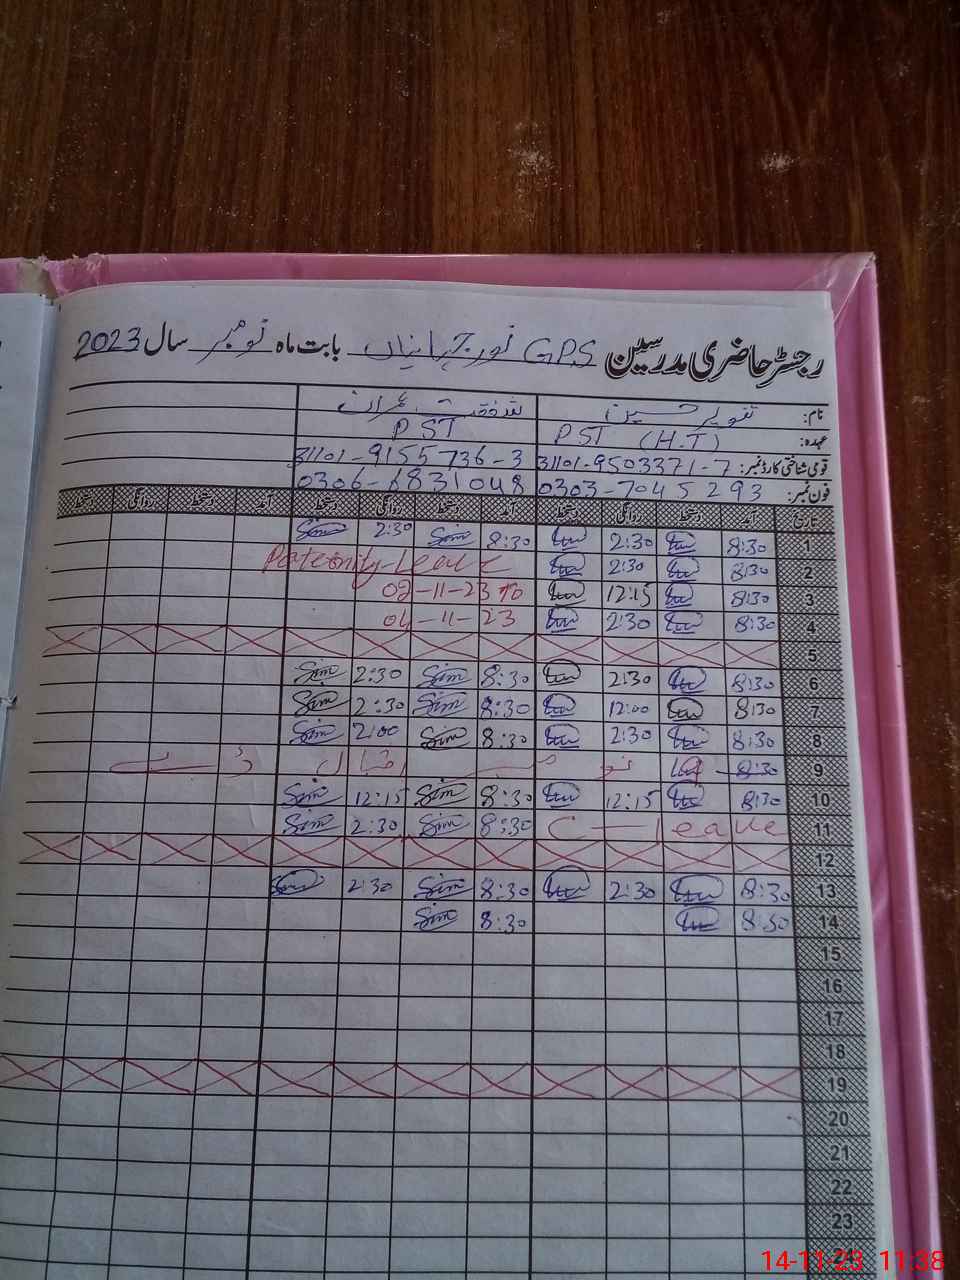 رجسٹر حاضری مدرسین GPS نور جہانیاں بابت ماہ نومبر سال 2023
نام: تنویر حسین
عہدہ: PST (H.T) PST
قومی شناختی کارڈ نمبر: 31101-9503371-7 31101-9155736-3
فون نمبر: 0303-7045293 0306-6831048
تاریخ آمد دستخط روانگی دستخط آمد دستخط روانگی دستخط آمد دستخط روانگی دستخط
1 8:30 2:30 8:30 Sim 2:30 Sim
2 8:30 2:30 Paternity Leave
3 8:30 12:15 02-11-23 to
4 8:30 2:30 04-11-23
5
6 8:30 2:30 8:30 Sim 2:30 Sim
7 8:30 12:00 8:30 Sim 2:30 Sim
8 8:30 2:30 8:30 Sim 2:00 Sim
9 8:30 نومبر اقبال ڈے
10 8:30 12:15 8:30 Sim 12:15 Sim
11 C-leave 8:30 Sim 2:30 Sim
12
13 8:30 2:30 8:30 Sim 2:30 Sim
14 8:30 8:30 Sim
15
16
17
18
19
20
21
22
23
24
14-11-23 11:38